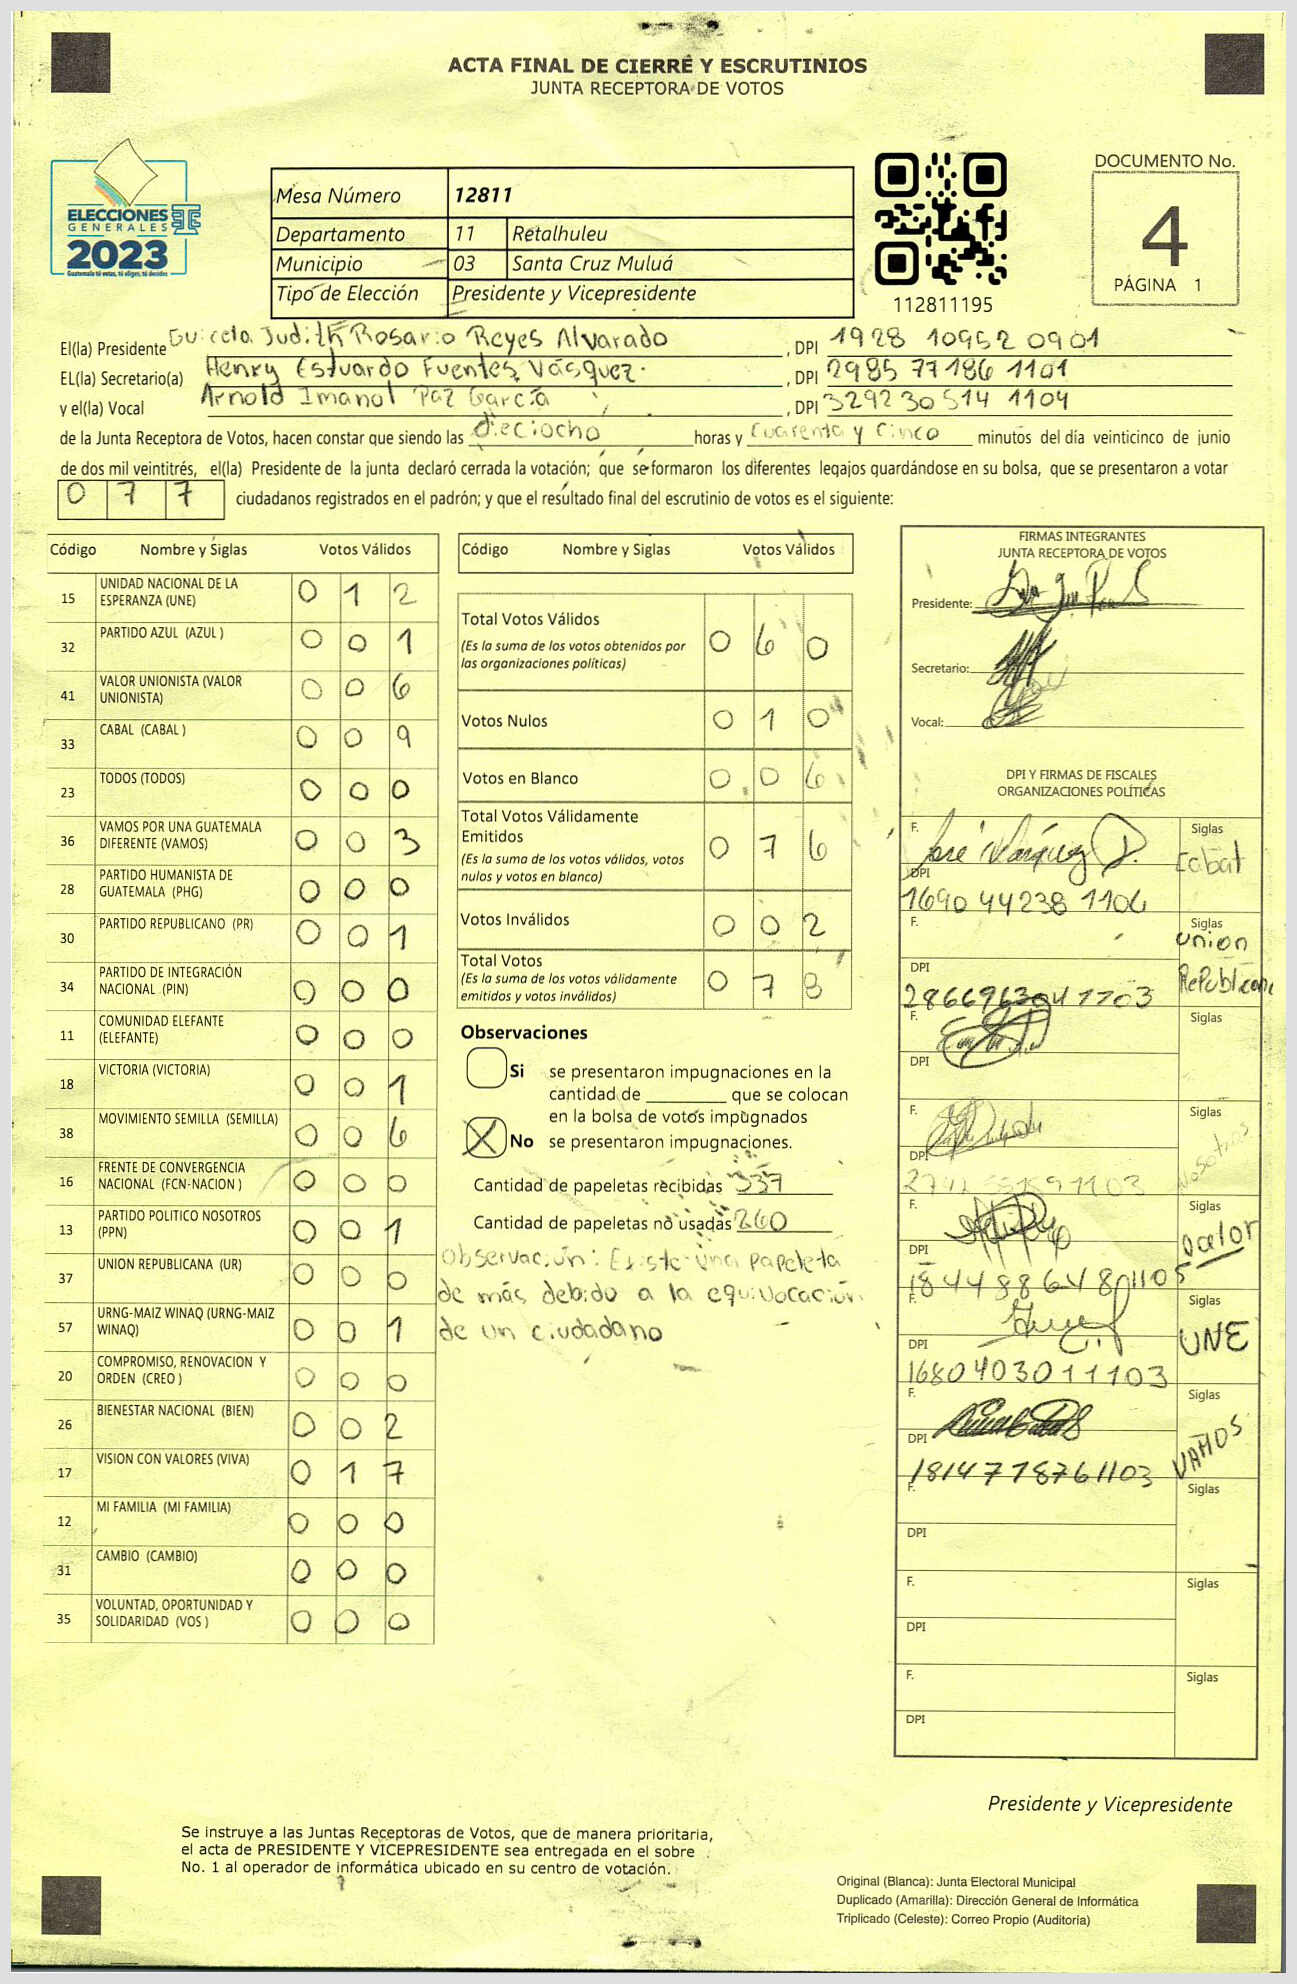 ACTA FINAL DE CIERRE Y ESCRUTINIOS
JUNTA RECEPTORA DE VOTOS
ELECCIONES
GENERALES
2023
Guatemala tú votas, tú eliges, tú decides
Mesa Número 12811
Departamento 11 Retalhuleu
Municipio 03 Santa Cruz Muluá
Tipo de Elección Presidente y Vicepresidente
112811195
DOCUMENTO No.
4
PÁGINA 1
El(la) Presidente Guicela Judith Rosario Reyes Alvarado, DPI 1928 10952 0901
EL(la) Secretario(a) Henry Estuardo Fuentes Vásquez, DPI 2985 77186 1101
y el(la) Vocal Arnold Imanol Paz García, DPI 3292 30514 1104
de la Junta Receptora de Votos, hacen constar que siendo las dieciocho horas y cuarenta y cinco minutos del día veinticinco de junio
de dos mil veintitrés, el(la) Presidente de la junta declaró cerrada la votación; que se formaron los diferentes legajos guardándose en su bolsa, que se presentaron a votar
0 7 7 ciudadanos registrados en el padrón; y que el resultado final del escrutinio de votos es el siguiente:
Código Nombre y Siglas Votos Válidos
15 UNIDAD NACIONAL DE LA ESPERANZA (UNE) 0 1 2
32 PARTIDO AZUL (AZUL ) 0 0 1
41 VALOR UNIONISTA (VALOR UNIONISTA) 0 0 6
33 CABAL (CABAL ) 0 0 9
23 TODOS (TODOS) 0 0 0
36 VAMOS POR UNA GUATEMALA DIFERENTE (VAMOS) 0 0 3
28 PARTIDO HUMANISTA DE GUATEMALA (PHG) 0 0 0
30 PARTIDO REPUBLICANO (PR) 0 0 1
34 PARTIDO DE INTEGRACIÓN NACIONAL (PIN) 0 0 0
11 COMUNIDAD ELEFANTE (ELEFANTE) 0 0 0
18 VICTORIA (VICTORIA) 0 0 1
38 MOVIMIENTO SEMILLA (SEMILLA) 0 0 6
16 FRENTE DE CONVERGENCIA NACIONAL (FCN-NACION ) 0 0 0
13 PARTIDO POLITICO NOSOTROS (PPN) 0 0 1
37 UNION REPUBLICANA (UR) 0 0 0
57 URNG-MAIZ WINAQ (URNG-MAIZ WINAQ) 0 0 1
20 COMPROMISO, RENOVACION Y ORDEN (CREO ) 0 0 0
26 BIENESTAR NACIONAL (BIEN) 0 0 2
17 VISION CON VALORES (VIVA) 0 1 7
12 MI FAMILIA (MI FAMILIA) 0 0 0
31 CAMBIO (CAMBIO) 0 0 0
35 VOLUNTAD, OPORTUNIDAD Y SOLIDARIDAD (VOS ) 0 0 0
Código Nombre y Siglas Votos Válidos
Total Votos Válidos 0 6 0
(Es la suma de los votos obtenidos por
las organizaciones políticas)
Votos Nulos 0 1 0
Votos en Blanco 0 0 6
Total Votos Válidamente
Emitidos 0 7 6
(Es la suma de los votos válidos, votos
nulos y votos en blanco)
Votos Inválidos 0 0 2
Total Votos 0 7 8
(Es la suma de los votos válidamente
emitidos y votos inválidos)
Observaciones
Si se presentaron impugnaciones en la
cantidad de ________ que se colocan
en la bolsa de votos impugnados
X No se presentaron impugnaciones.
Cantidad de papeletas recibidas 337
Cantidad de papeletas no usadas 260
Observación: Existe una papeleta
de más debido a la equivocación
de un ciudadano
FIRMAS INTEGRANTES
JUNTA RECEPTORA DE VOTOS
Presidente:
Secretario:
Vocal:
DPI Y FIRMAS DE FISCALES
ORGANIZACIONES POLÍTICAS
F. José Márquez Siglas Cabal
DPI 1690 44238 1106
F. Siglas Union Republicana
DPI 2866963041103
F. Siglas
DPI
F. Siglas Nosotros
DPI
F. Siglas Valor
DPI 1844886481105
F. Siglas UNE
DPI 1680403011103
F. Siglas VAMOS
DPI 1814778761103
F. Siglas
DPI
F. Siglas
DPI
F. Siglas
DPI
Presidente y Vicepresidente
Se instruye a las Juntas Receptoras de Votos, que de manera prioritaria,
el acta de PRESIDENTE Y VICEPRESIDENTE sea entregada en el sobre
No. 1 al operador de informática ubicado en su centro de votación.
Original (Blanca): Junta Electoral Municipal
Duplicado (Amarilla): Dirección General de Informática
Triplicado (Celeste): Correo Propio (Auditoría)